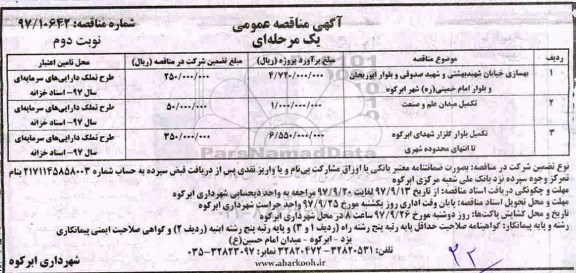 آگهی مناقصه عمومی
یک مرحله‌ای
شماره مناقصه: ۹۷/۱۰۶۴۲
نوبت دوم
ردیف موضوع مناقصه مبلغ برآورد پروژه (ریال) مبلغ تضمین شرکت در مناقصه (ریال) محل تامین اعتبار
۱ بهسازی خیابان شهیدبهشتی و شهید صدوقی و بلوار آذربایجان و بلوار امام خمینی(ره) شهر ابرکوه ۴/۷۲۰/۰۰۰/۰۰۰ ۲۵۰/۰۰۰/۰۰۰ طرح تملک دارایی‌های سرمایه‌ای سال ۹۷– اسناد خزانه
۲ تکمیل میدان علم و صنعت ۱/۰۰۰/۰۰۰/۰۰۰ ۵۰/۰۰۰/۰۰۰ طرح تملک دارایی‌های سرمایه‌ای سال ۹۷– اسناد خزانه
۳ تکمیل بلوار گلزار شهدای ابرکوه تا انتهای محدوده شهری ۶/۵۵۰/۰۰۰/۰۰۰ ۳۵۰/۰۰۰/۰۰۰ طرح تملک دارایی‌های سرمایه‌ای سال ۹۷– اسناد خزانه
نوع تضمین شرکت در مناقصه: بصورت ضمانتنامه معتبر بانکی یا اوراق مشارکت بی‌نام و یا واریز نقدی پس از دریافت قبض سپرده به حساب شماره ۲۱۷۱۱۴۵۸۵۸۰۰۳ بنام
تمرکز وجوه سپرده نزد بانک ملی شعبه مرکزی ابرکوه
مهلت و چگونگی دریافت اسناد مناقصه: از تاریخ ۹۷/۹/۱۳ لغایت ۹۷/۹/۲۰ مراجعه به واحد ذیحسابی شهرداری ابرکوه
مهلت و محل تحویل اسناد مناقصه: پایان وقت اداری روز یکشنبه مورخ ۹۷/۹/۲۵ واحد حراست شهرداری ابرکوه
تاریخ و محل گشایش پاکت‌ها: روز دوشنبه مورخ ۹۷/۹/۲۶ ساعت ۸ در محل شهرداری ابرکوه
رشته و پایه پیمانکار: گواهینامه صلاحیت حداقل پایه رتبه پنج رشته راه (ردیف ۱ و ۳) و پایه رتبه پنج رشته ابنیه (ردیف ۲) و گواهی صلاحیت ایمنی پیمانکاری
یزد – ابرکوه – میدان امام حسین(ع)
تلفن: ۳۲۸۲۰۵۳۱–۳۲۸۲۰۴۷۲ نمابر: ۳۲۸۲۳۰۹۷–۰۳۵
www.abarkooh.ir
شهرداری ابرکوه
ParsNamadData